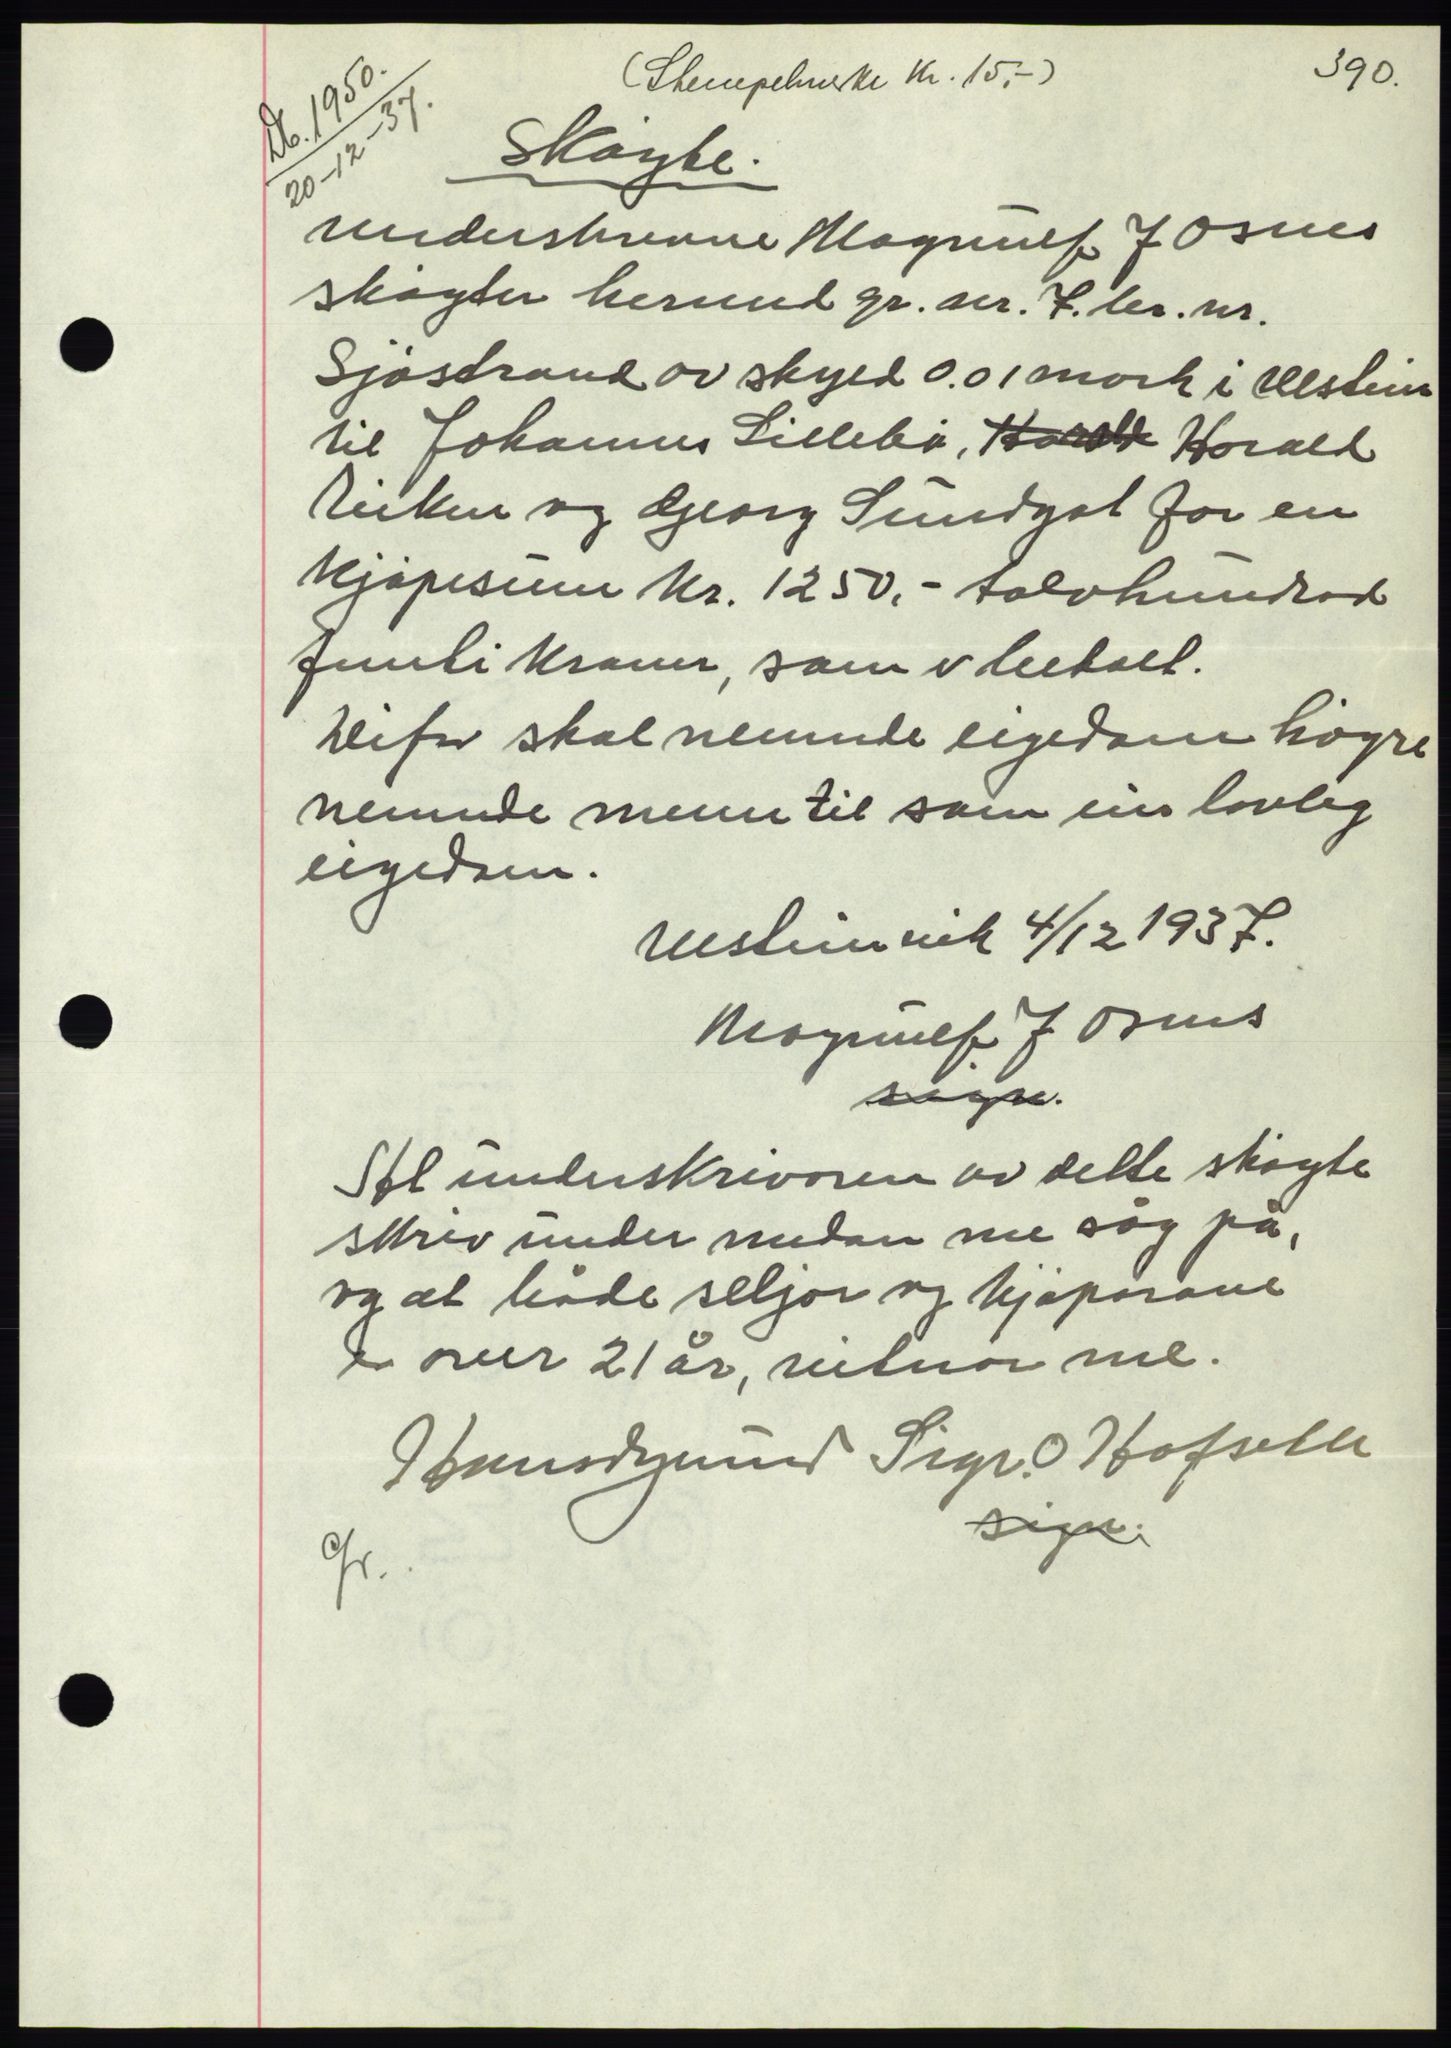 390.
(Stempelmerke Kr. 15,-)
Db. 1950.
20-12-37.
Skøyte.
Underskrevne Magnulf J Osnes
skøyter herved gr. nr. 7. br. nr.
Sjøstrand av skyld 0.01 mark i Ulstein
til Johannes Lillebø, Harald Harald
og Georg Sundgot for en
Kjøpesum Kr. 1250,- tolvhundrad
femti Kroner, som er betalt.
Difor skal nemnde eigedom høyre
nemnde menn til som ein lovleg
eigedom.
Ulsteinvik 4/12 1937.
Magnulf J Osnes
sign.
At underskrivaren av dette skøyte
skriv under medan me såg på,
og at både seljar og kjøparane
er over 21 år, vitnar me.
Hans Sigr. O Hofseth
sign.
Gr.